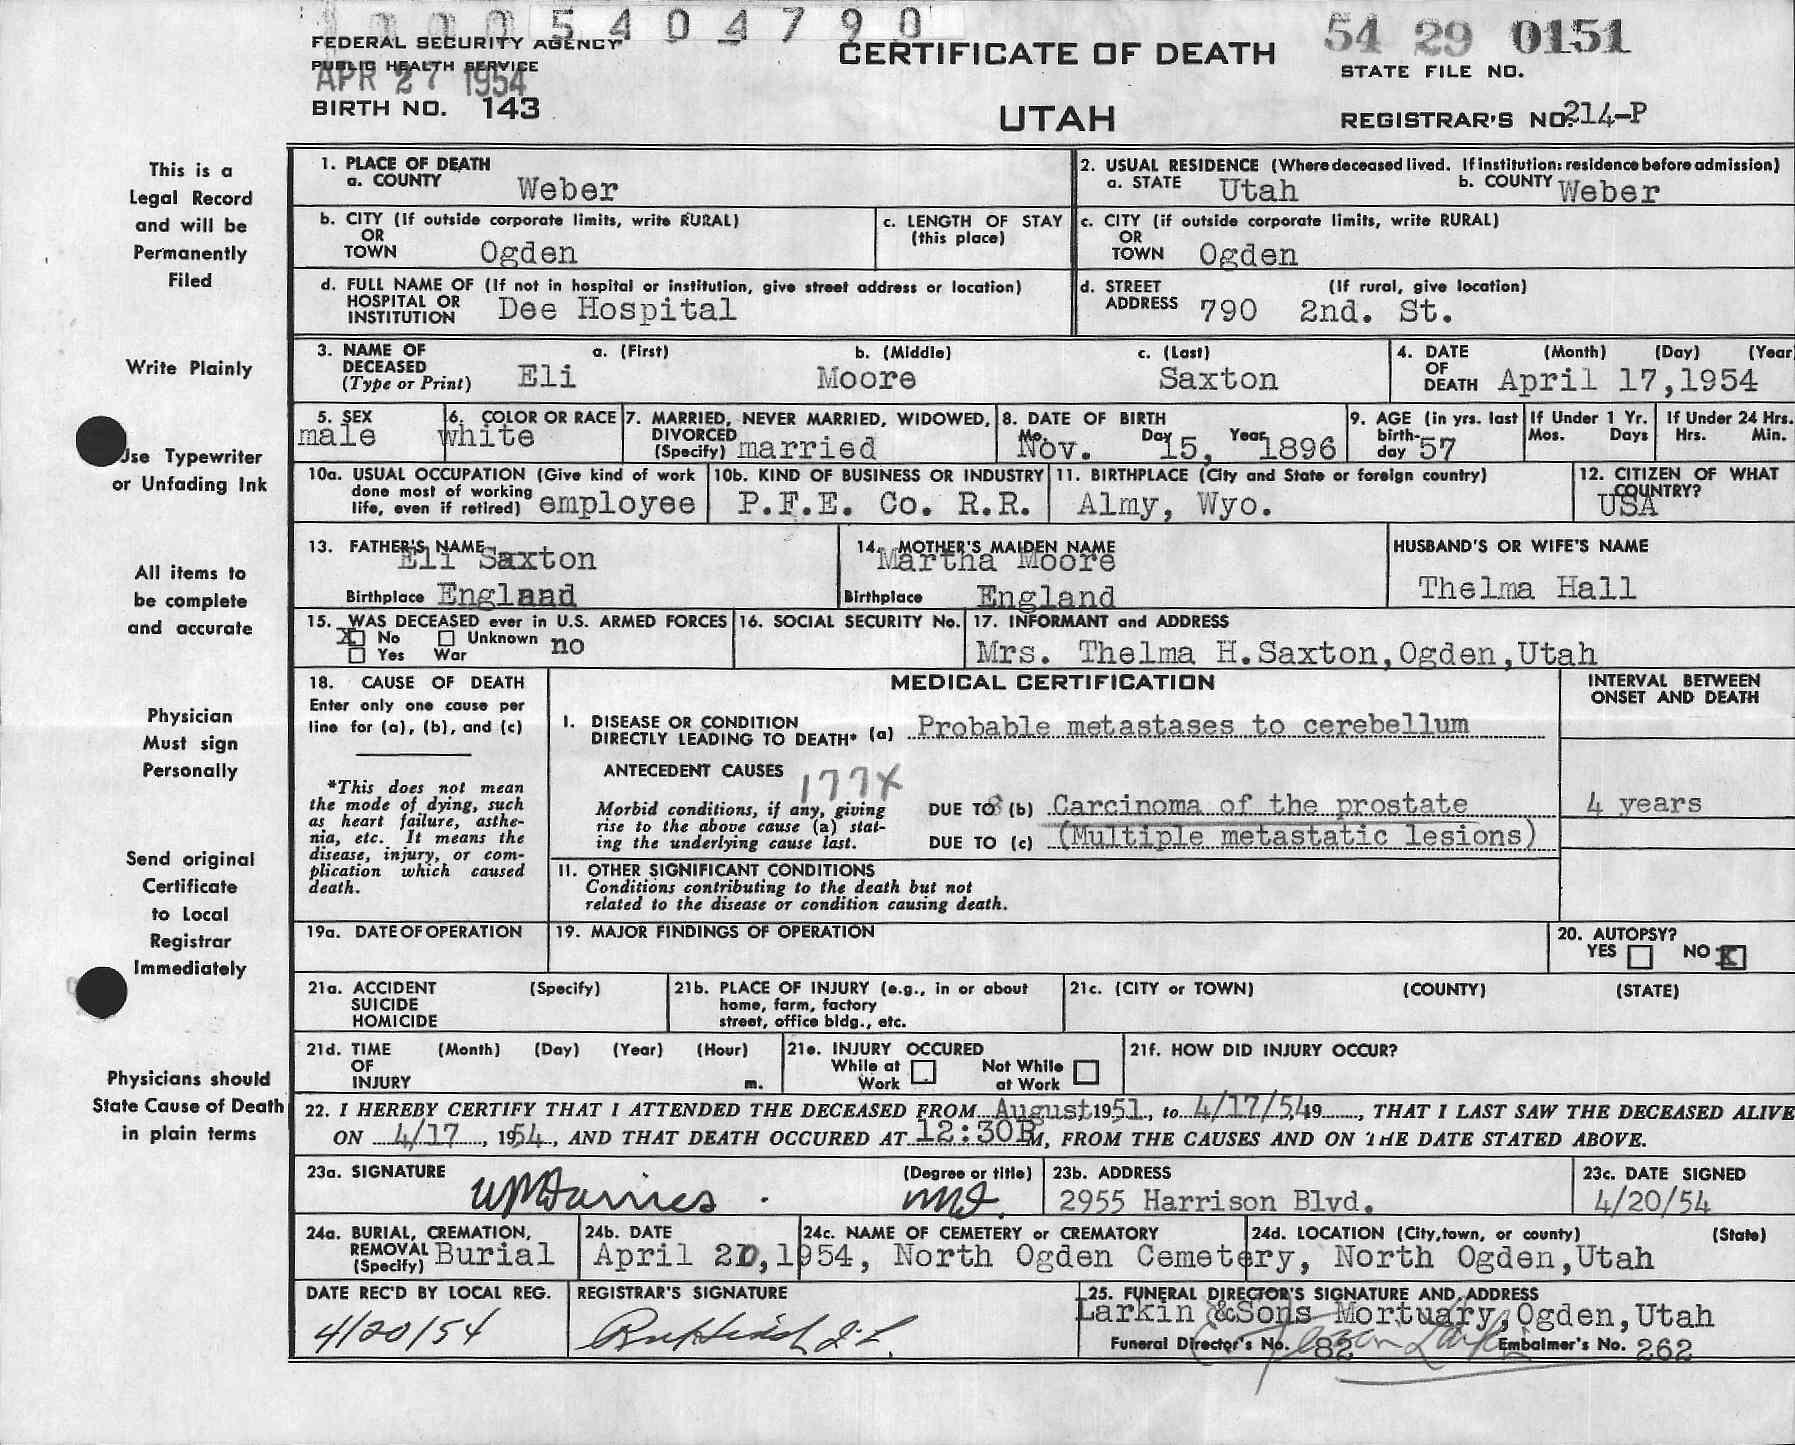 1000 5 4 0 4 7 9 0
54 29 0151
FEDERAL SECURITY AGENCY
PUBLIC HEALTH SERVICE
APR 27 1954
BIRTH NO. 143
CERTIFICATE OF DEATH
UTAH
STATE FILE NO.
REGISTRAR'S NO. 214-P
This is a
Legal Record
and will be
Permanently
Filed
Write Plainly
Use Typewriter
or Unfading Ink
All items to
be complete
and accurate
Physician
Must sign
Personally
Send original
Certificate
to Local
Registrar
Immediately
Physicians should
State Cause of Death
in plain terms
1. PLACE OF DEATH
a. COUNTY Weber
2. USUAL RESIDENCE (Where deceased lived. If institution: residence before admission)
a. STATE Utah b. COUNTY Weber
b. CITY (If outside corporate limits, write RURAL)
OR
TOWN Ogden
c. LENGTH OF STAY
(this place)
c. CITY (if outside corporate limits, write RURAL)
OR
TOWN Ogden
d. FULL NAME OF (If not in hospital or institution, give street address or location)
HOSPITAL OR
INSTITUTION Dee Hospital
d. STREET (If rural, give location)
ADDRESS 790 2nd. St.
3. NAME OF a. (First) b. (Middle) c. (Last)
DECEASED
(Type or Print) Eli Moore Saxton
4. DATE (Month) (Day) (Year)
OF
DEATH April 17,1954
5. SEX
male
6. COLOR OR RACE
white
7. MARRIED, NEVER MARRIED, WIDOWED,
DIVORCED
(Specify) married
8. DATE OF BIRTH
Mo. Day Year
Nov. 15, 1896
9. AGE (in yrs. last
birth-
day 57
If Under 1 Yr.
Mos. Days
If Under 24 Hrs.
Hrs. Min.
10a. USUAL OCCUPATION (Give kind of work
done most of working
life, even if retired) employee
10b. KIND OF BUSINESS OR INDUSTRY
P.F.E. Co. R.R.
11. BIRTHPLACE (City and State or foreign country)
Almy, Wyo.
12. CITIZEN OF WHAT
COUNTRY?
USA
13. FATHER'S NAME
Eli Saxton
Birthplace England
14. MOTHER'S MAIDEN NAME
Martha Moore
Birthplace England
HUSBAND'S OR WIFE'S NAME
Thelma Hall
15. WAS DECEASED ever in U.S. ARMED FORCES
X No Unknown no
Yes War
16. SOCIAL SECURITY No.
17. INFORMANT and ADDRESS
Mrs. Thelma H.Saxton,Ogden,Utah
18. CAUSE OF DEATH
Enter only one cause per
line for (a), (b), and (c)
*This does not mean
the mode of dying, such
as heart failure, asthe-
nia, etc. It means the
disease, injury, or com-
plication which caused
death.
MEDICAL CERTIFICATION
INTERVAL BETWEEN
ONSET AND DEATH
I. DISEASE OR CONDITION
DIRECTLY LEADING TO DEATH* (a) Probable metastases to cerebellum
ANTECEDENT CAUSES 177X
Morbid conditions, if any, giving
rise to the above cause (a) stat-
ing the underlying cause last.
DUE TO (b) Carcinoma of the prostate 4 years
DUE TO (c) (Multiple metastatic lesions)
II. OTHER SIGNIFICANT CONDITIONS
Conditions contributing to the death but not
related to the disease or condition causing death.
19a. DATE OF OPERATION
19. MAJOR FINDINGS OF OPERATION
20. AUTOPSY?
YES NO X
21a. ACCIDENT (Specify)
SUICIDE
HOMICIDE
21b. PLACE OF INJURY (e.g., in or about
home, farm, factory
street, office bldg., etc.
21c. (CITY or TOWN) (COUNTY) (STATE)
21d. TIME (Month) (Day) (Year) (Hour)
OF
INJURY m.
21e. INJURY OCCURED
While at Not While
Work at Work
21f. HOW DID INJURY OCCUR?
22. I HEREBY CERTIFY THAT I ATTENDED THE DECEASED FROM August 1951, to 4/17/54 19, THAT I LAST SAW THE DECEASED ALIVE
ON 4/17, 1954, AND THAT DEATH OCCURED AT 12:30P M, FROM THE CAUSES AND ON THE DATE STATED ABOVE.
23a. SIGNATURE (Degree or title)
MD.
23b. ADDRESS
2955 Harrison Blvd.
23c. DATE SIGNED
4/20/54
24a. BURIAL, CREMATION,
REMOVAL
(Specify) Burial
24b. DATE
April 20,1954,
24c. NAME OF CEMETERY or CREMATORY
North Ogden Cemetery,
24d. LOCATION (City,town, or county) (State)
North Ogden,Utah
DATE REC'D BY LOCAL REG.
4/20/54
REGISTRAR'S SIGNATURE
25. FUNERAL DIRECTOR'S SIGNATURE AND ADDRESS
Larkin &Sons Mortuary,Ogden,Utah
Funeral Director's No. 82 Embalmer's No. 262